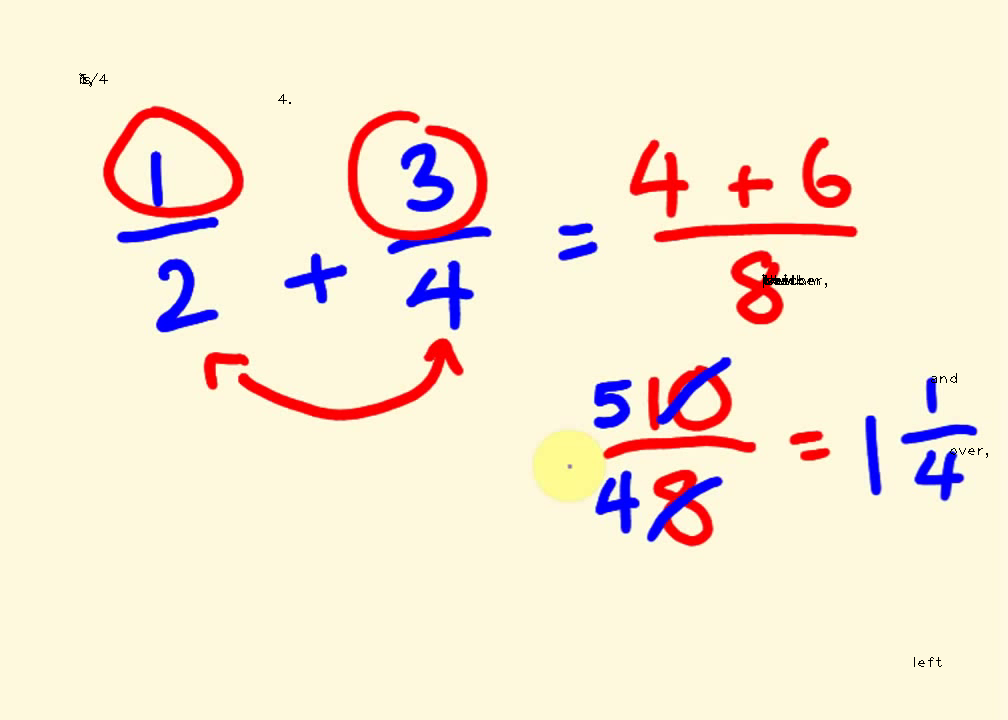 4.
1/2 + 3/4 = 4 + 6/8
5 10/4 8 = 1 1/4
and
over,
left